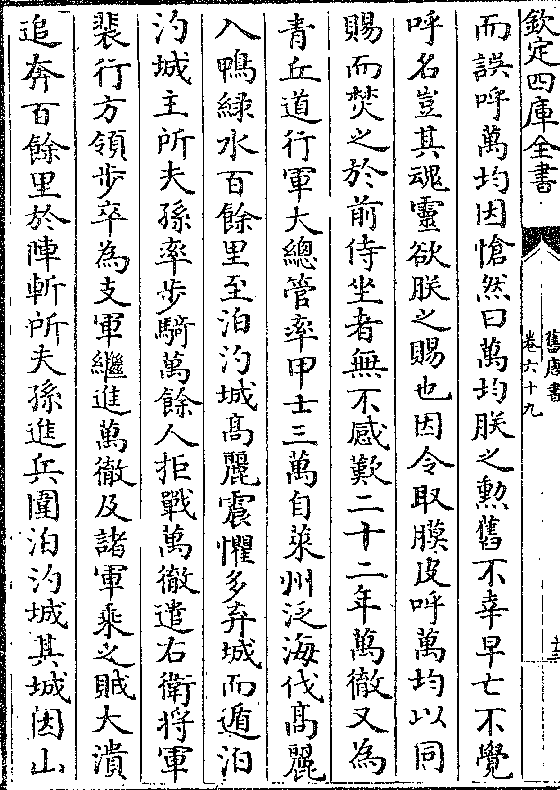 欽定四庫全書
舊唐書
卷六十九
十三
而誤呼萬均因愴然曰萬均朕之勲舊不幸早亡不覺
呼名豈其魂靈欲朕之賜也因令取膜皮呼萬均以同
賜而焚之於前侍坐者無不感歎二十二年萬徹又為
青丘道行軍大總管率甲士三萬自萊州泛海伐髙麗
入鴨緑水百餘里至泊汋城髙麗震懼多弃城而遁泊
汋城主所夫孫率步騎萬餘人拒戰萬徹遣右衛将軍
裴行方領步卒為支軍繼進萬徹及諸軍乘之賊大潰
追奔百餘里於陣斬所夫孫進兵圍泊汋城其城因山